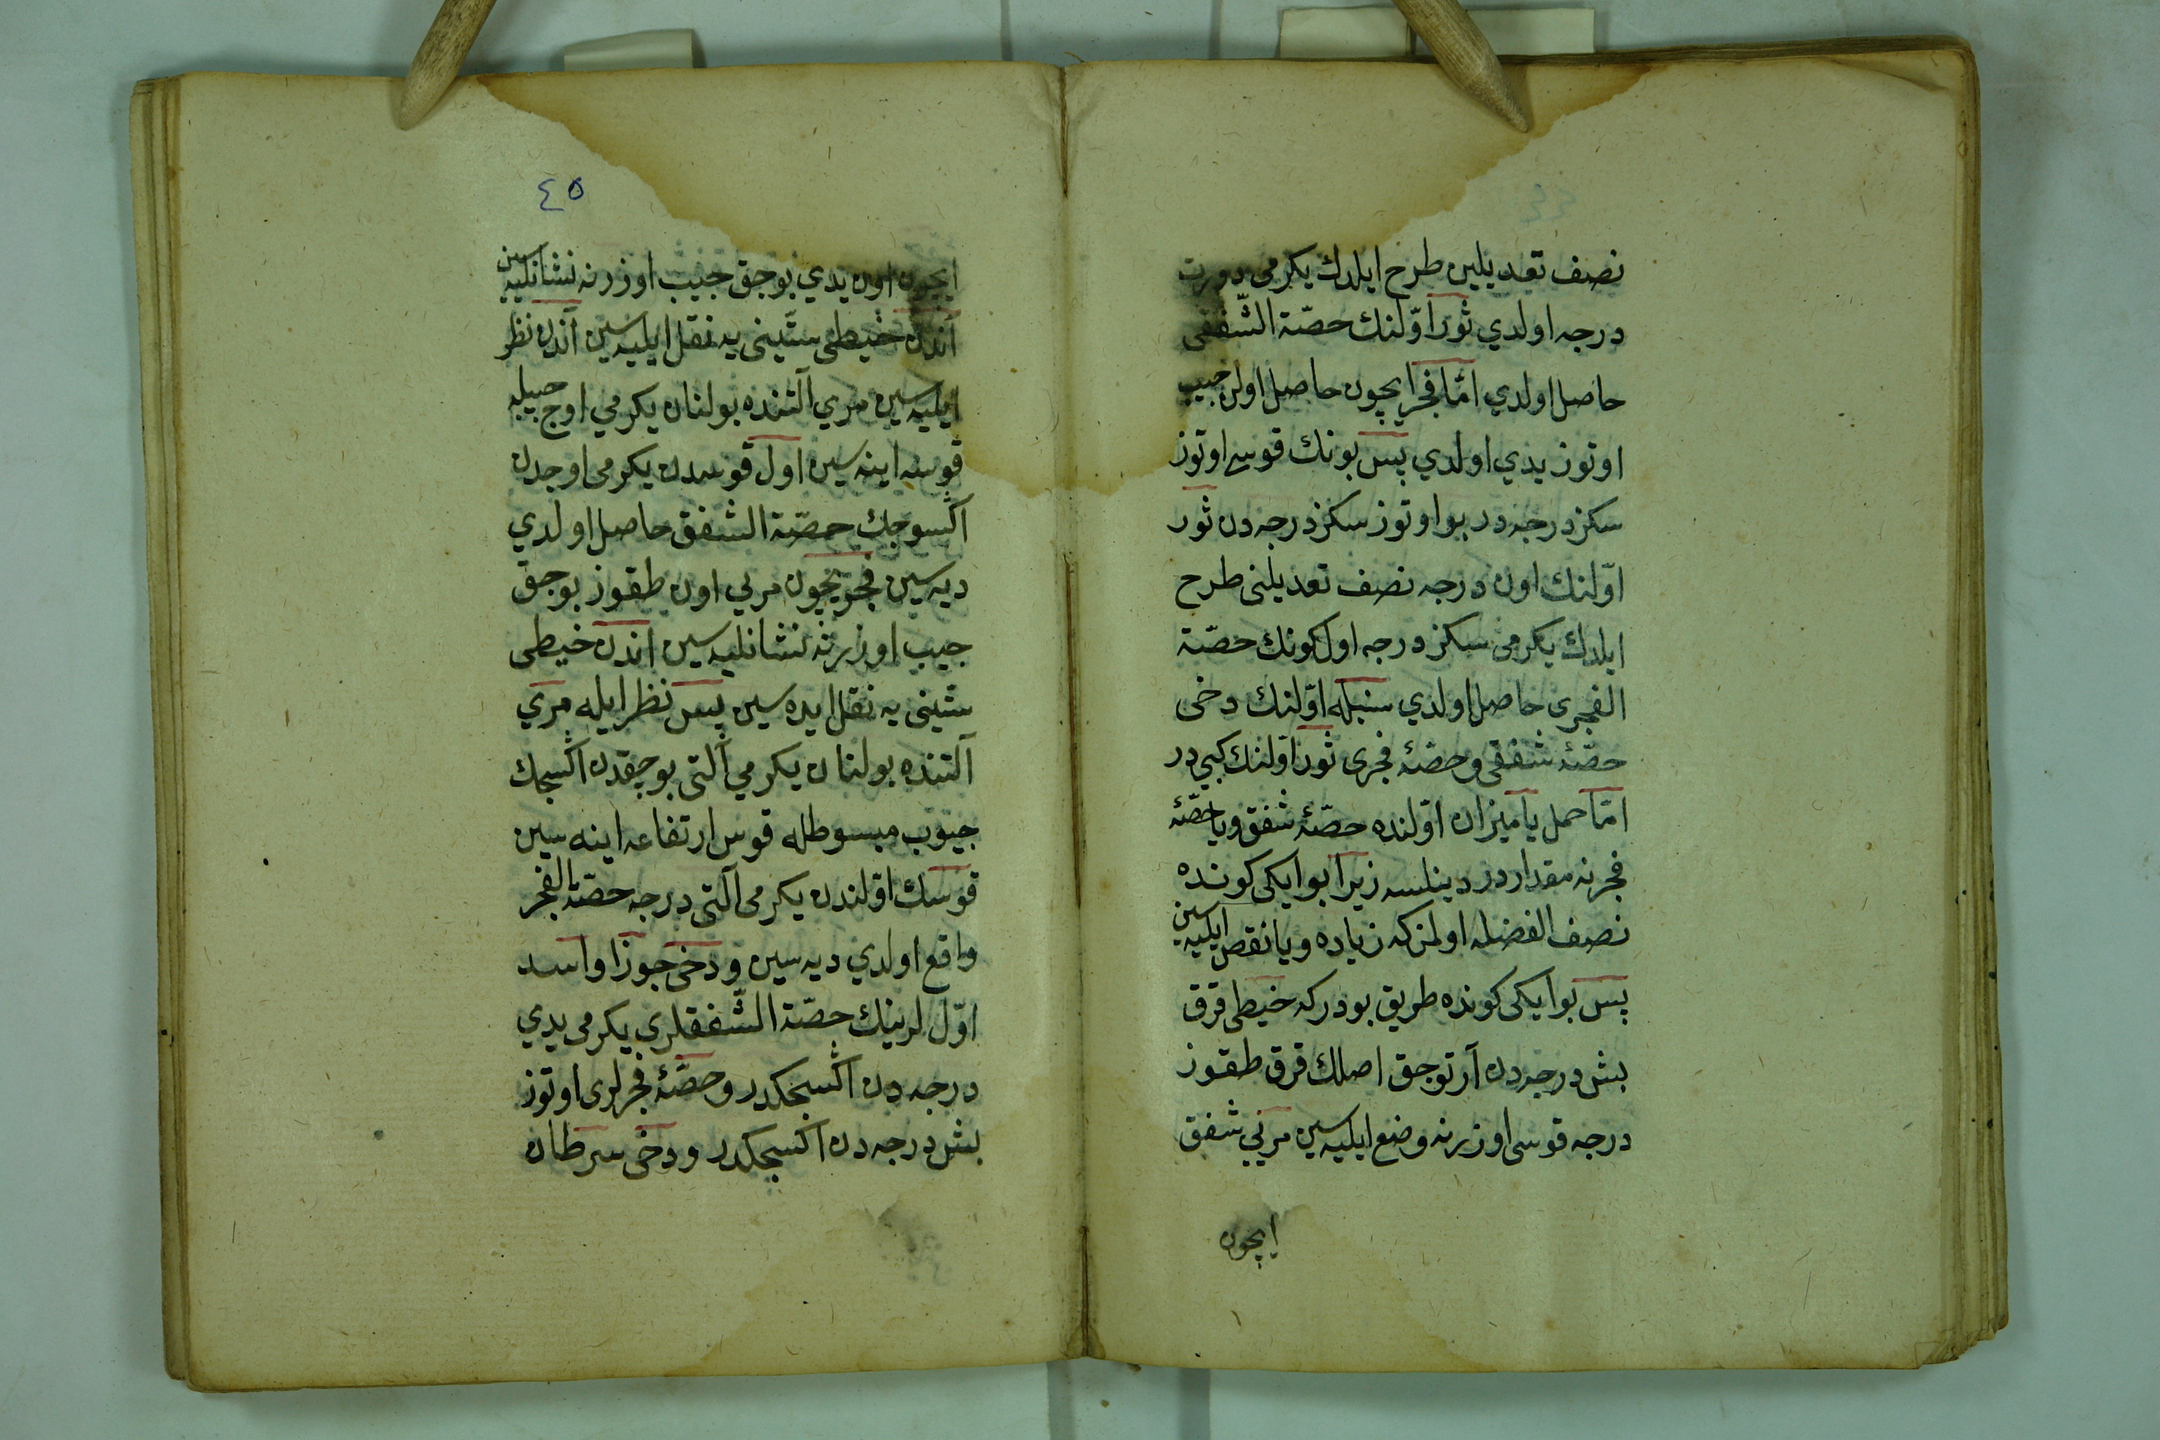 نصف تعديلين طرح ايلدك يكرمى دورت
درجه اولدي ثور اوّلنك حصّة الشّفقى
حاصل اولدي امّا فجر ايچون حاصل اولن جيب
اوتوز يدي اولدي پس بونك قوسى اوتوز
سكز درجه در بو اوتوز سكز درجه دن ثور
اوّلنك اون درجه نصف تعديلنى طرح
ايلدك يكرمى سكز درجه اول كونك حصّة
الفجرى حاصل اولدي سنبله اوّلنك دخى
حصّهٔ شفقى و حصّهٔ فجرى ثور اوّلنك كبي در
امّا حمل يا ميزان اوّلنده حصّهٔ شفق ويا حصّهٔ
فجر نه مقدار در دينلسه زيرا بو ايكى كونده
نصف الفضله اولمز كه زياده ويا نقص ايليه سين
پس بو ايكى كونده طريق بودركه خيطى قرق
بش درجه دن آرتوجق اصلك قرق طقوز
درجه قوسى اوزرنه وضع ايليه سين مريي شفق
ايچون
٤٥
ايچون اون يدي بوجق جيب اوزرنه نشانليه سين
آندن خيطى ستّينى يه نقل ايليه سين آندن نظر
ايليه سين مري آلتنده بولنان يكرمي اوچ جيبله
قوسه اينه سين اول قوسدن يكرمى اوجدن
اكسوجك حصّة الشفق حاصل اولدي
ديه سين فجر ايچون مريي اون طقوز بوجق
جيب اوزرنه نشانليه سين اندن خيطى
ستّينى يه نقل ايده سين پس نظر ايله مري
آلتنده بولنان يكرمي آلتى بوچقدن اكسجك
جيوب مبسوطله قوس ارتفاعه اينه سين
قوسك اوّلندن يكرمى آلتى درجه حصّة الفجر
واقع اولدي ديه سين ودخى جوزا و اسد
اوّل لرينك حصّة الشّفقلرى يكرمى يدي
درجه دن اكسجكدر و حصّهٔ فجرلرى اوتوز
بش درجه دن اكسجكدر ودخى سرطان